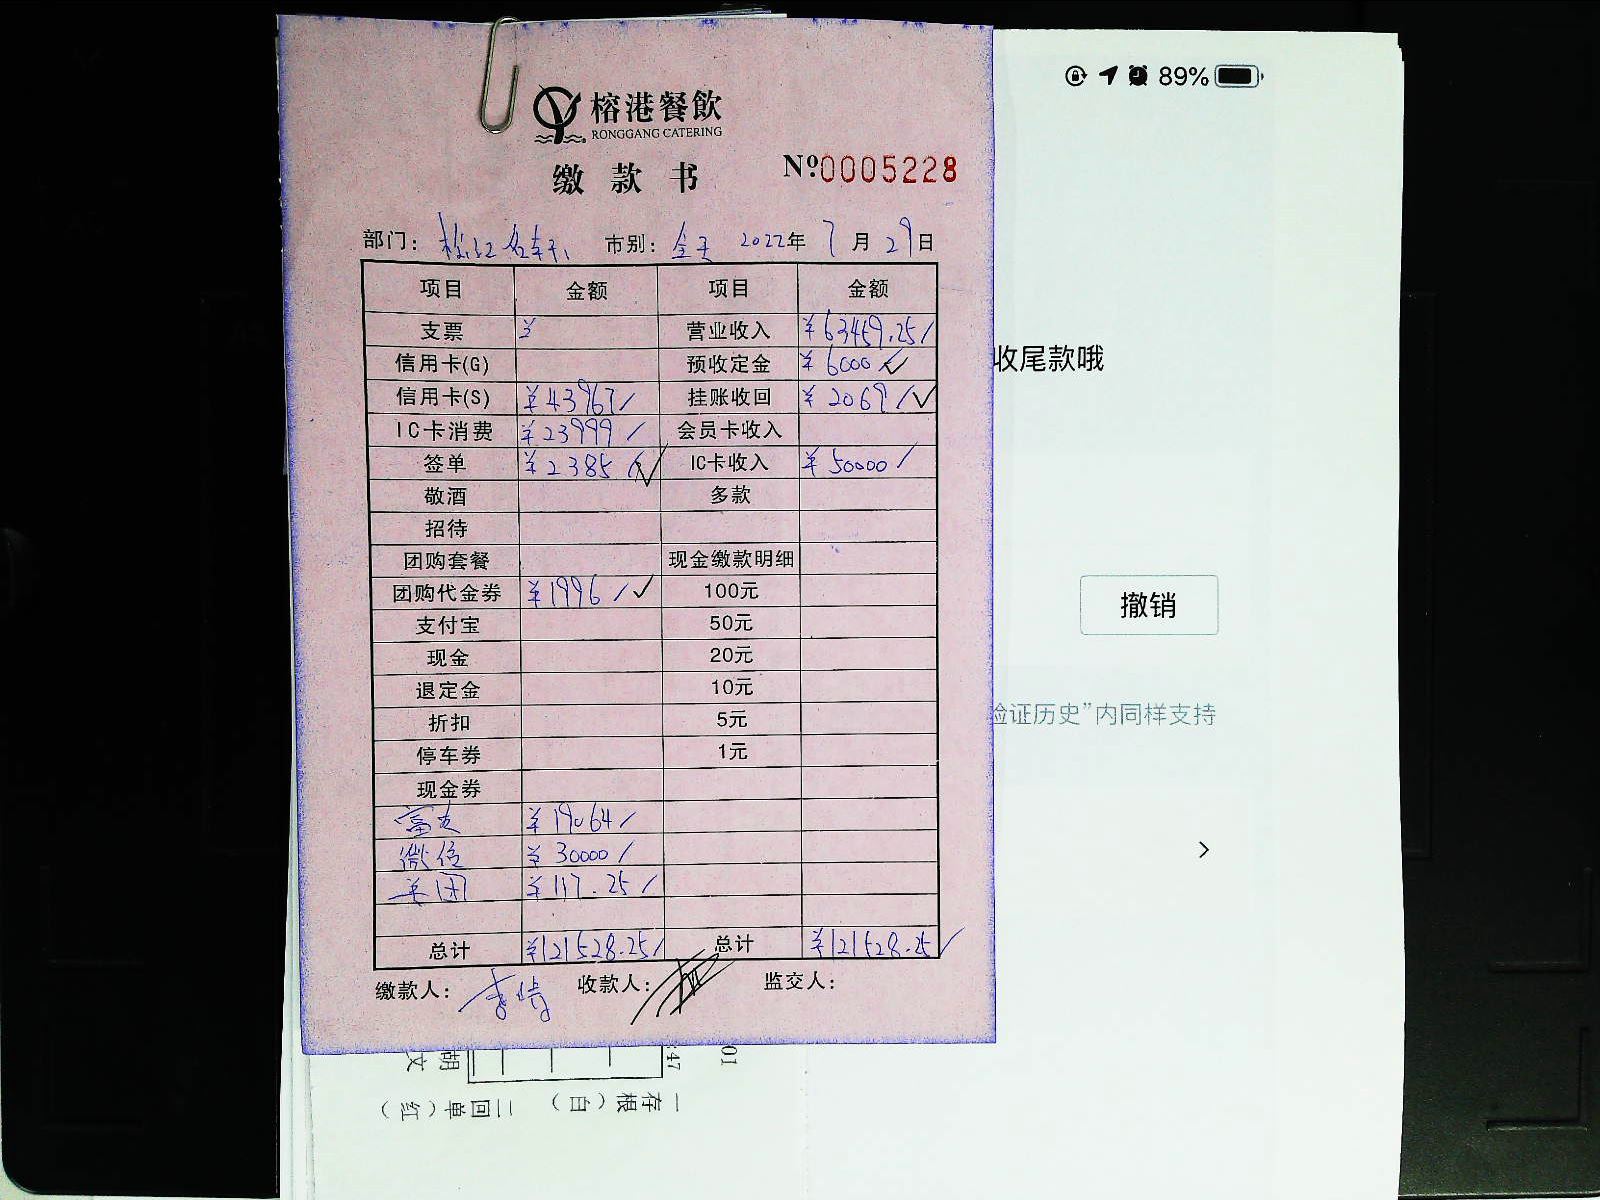 89%
榕港餐飲
RONGGANG CATERING
缴款书 №0005228
部门: 松江名轩 市别: 全天 2022年 7月 29日
项目 金额 项目 金额
支票 ¥ 营业收入 ¥63459.25
信用卡(G) 预收定金 ¥6000
信用卡(S) ¥43967 挂账收回 ¥2069
IC卡消费 ¥23999 会员卡收入
签单 ¥2385 IC卡收入 ¥50000
敬酒 多款
招待
团购套餐 现金缴款明细
团购代金券 ¥1996 100元
支付宝 50元
现金 20元
退定金 10元
折扣 5元
停车券 1元
现金券
富友 ¥19064
微信 ¥30000
美团 ¥117.25
总计 ¥121528.25 总计 ¥121528.25
缴款人: 收款人: 监交人:
收尾款哦
撤销
验证历史”内同样支持
胡
文
:47
01
一存根(白) 二回单(红)